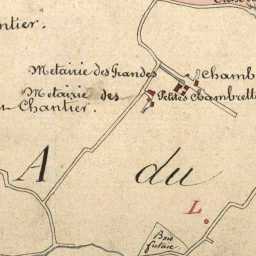 ntier.
Metairie des Grandes
Chamb
Metairie des Petites Chambrett
Chantier.
A du
L.
Bois
futaie